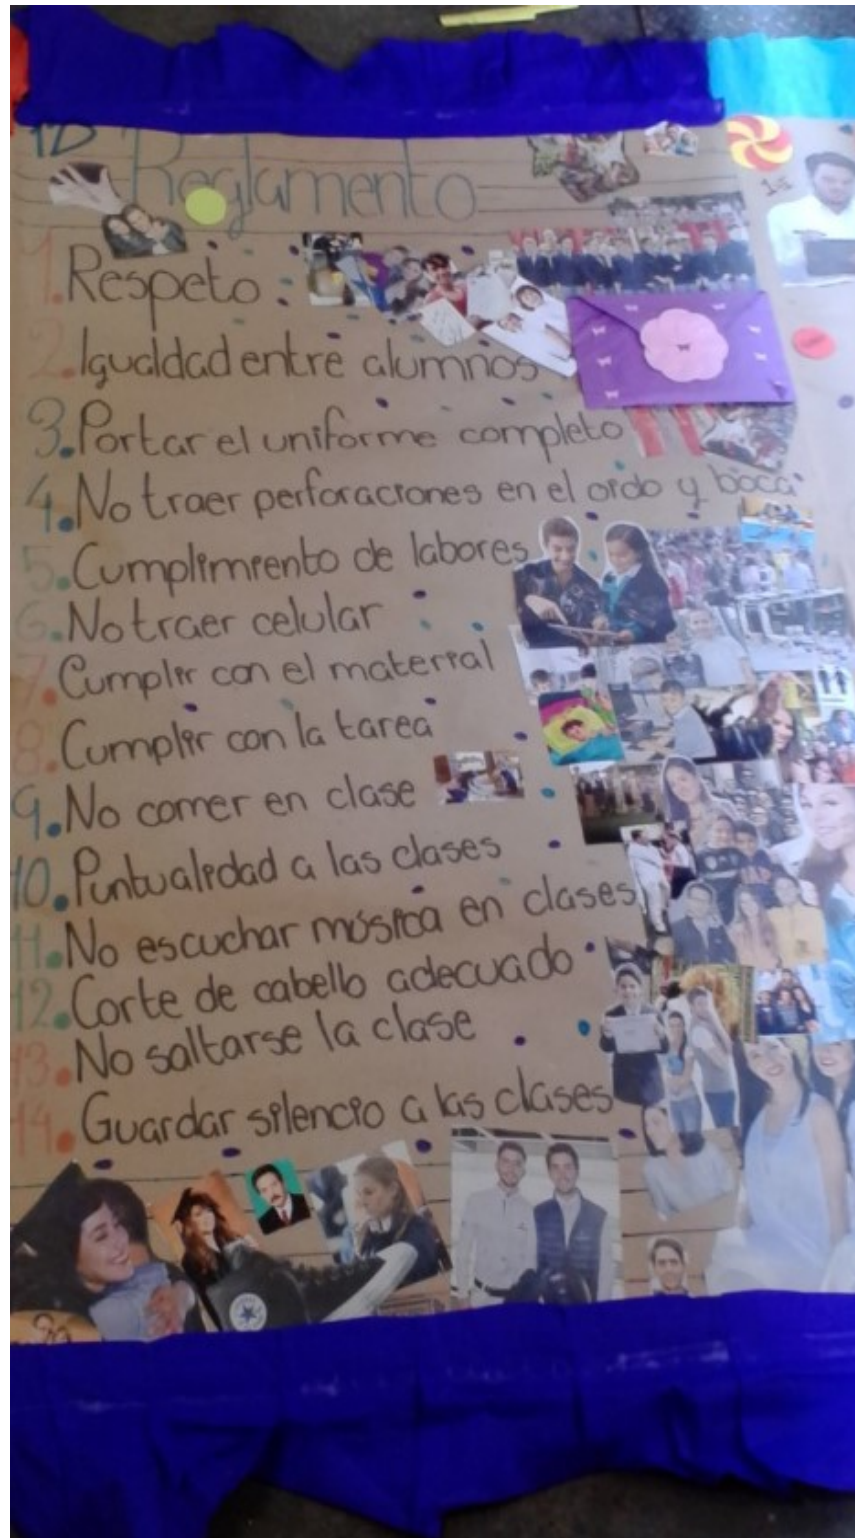 1D
Reglamento
1. Respeto
2. Igualdad entre alumnos
3. Portar el uniforme completo
4. No traer perforaciones en el oido y boca
5. Cumplimiento de labores
6. No traer celular
7. Cumplir con el material
8. Cumplir con la tarea
9. No comer en clase
10. Puntualidad a las clases
11. No escuchar música en clases
12. Corte de cabello adecuado
13. No saltarse la clase
14. Guardar silencio a las clases